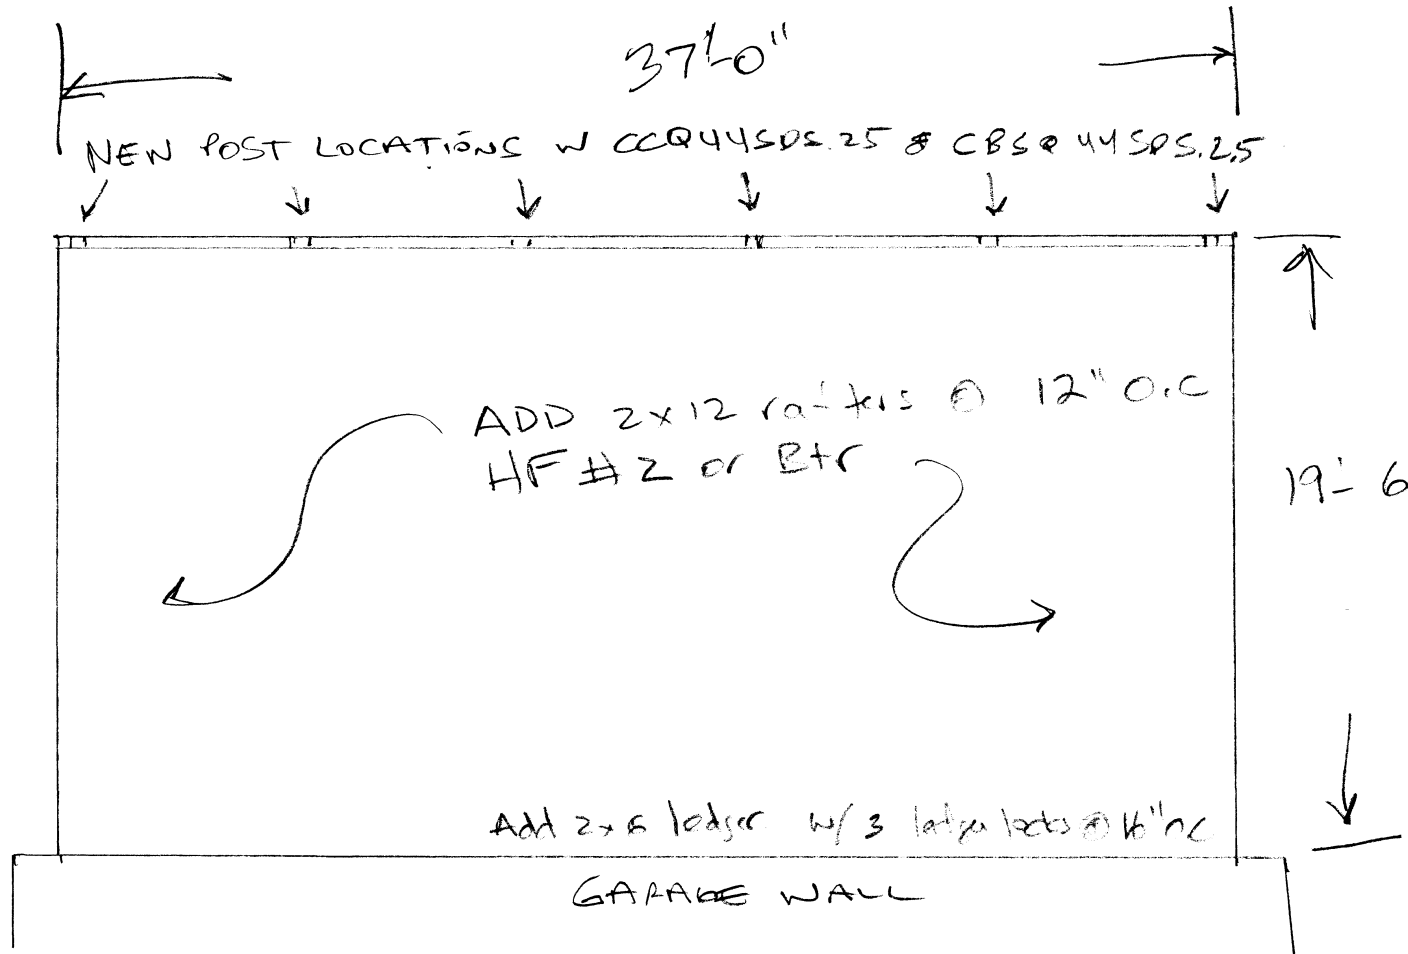 37'-0"
NEW POST LOCATIONS W CCQ44SDS.25 & CBSQ44SDS.25
ADD 2x12 rafters @ 12" O.C
HF #2 or Btr
19'-6
Add 2x6 ledger w/ 3 ledger locks @ 16" oc
GARAGE WALL